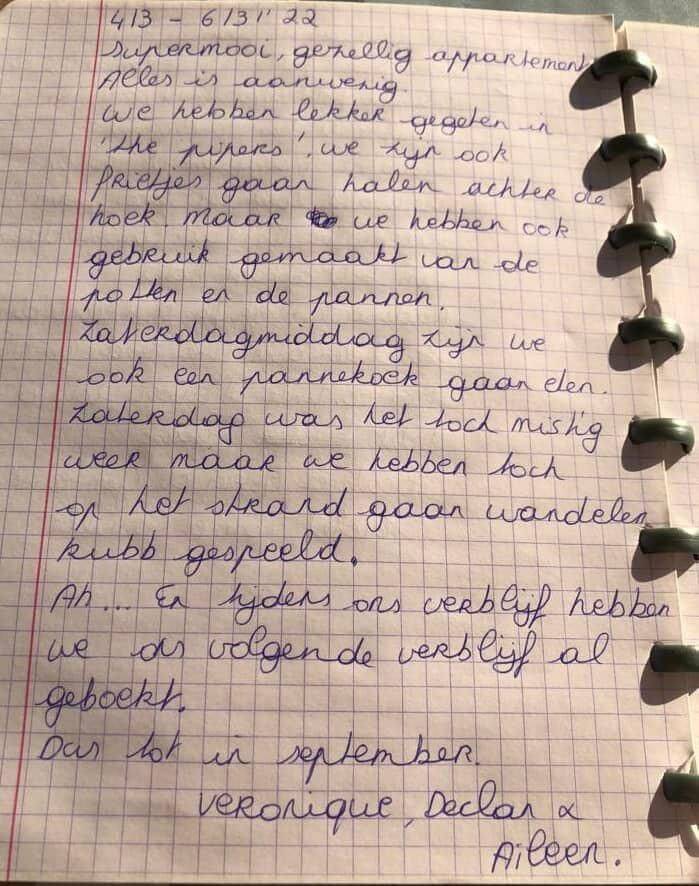 4/3 - 6/3/'22
Supermooi, gezellig appartement.
Alles is aanwezig.
We hebben lekker gegeten in
'the pipers', we zijn ook
frietjes gaan halen achter de
hoek maar we hebben ook
gebruik gemaakt van de
potten en de pannen.
Zaterdagmiddag zijn we
ook een pannekoek gaan eten.
Zaterdag was het toch mistig
weer maar we hebben toch
op het strand gaan wandelen,
kubb gespeeld.
Ah... En tijdens ons verblijf hebben
we ons volgende verblijf al
geboekt.
Dus tot in september.
Veronique, Declan &
Aileen.